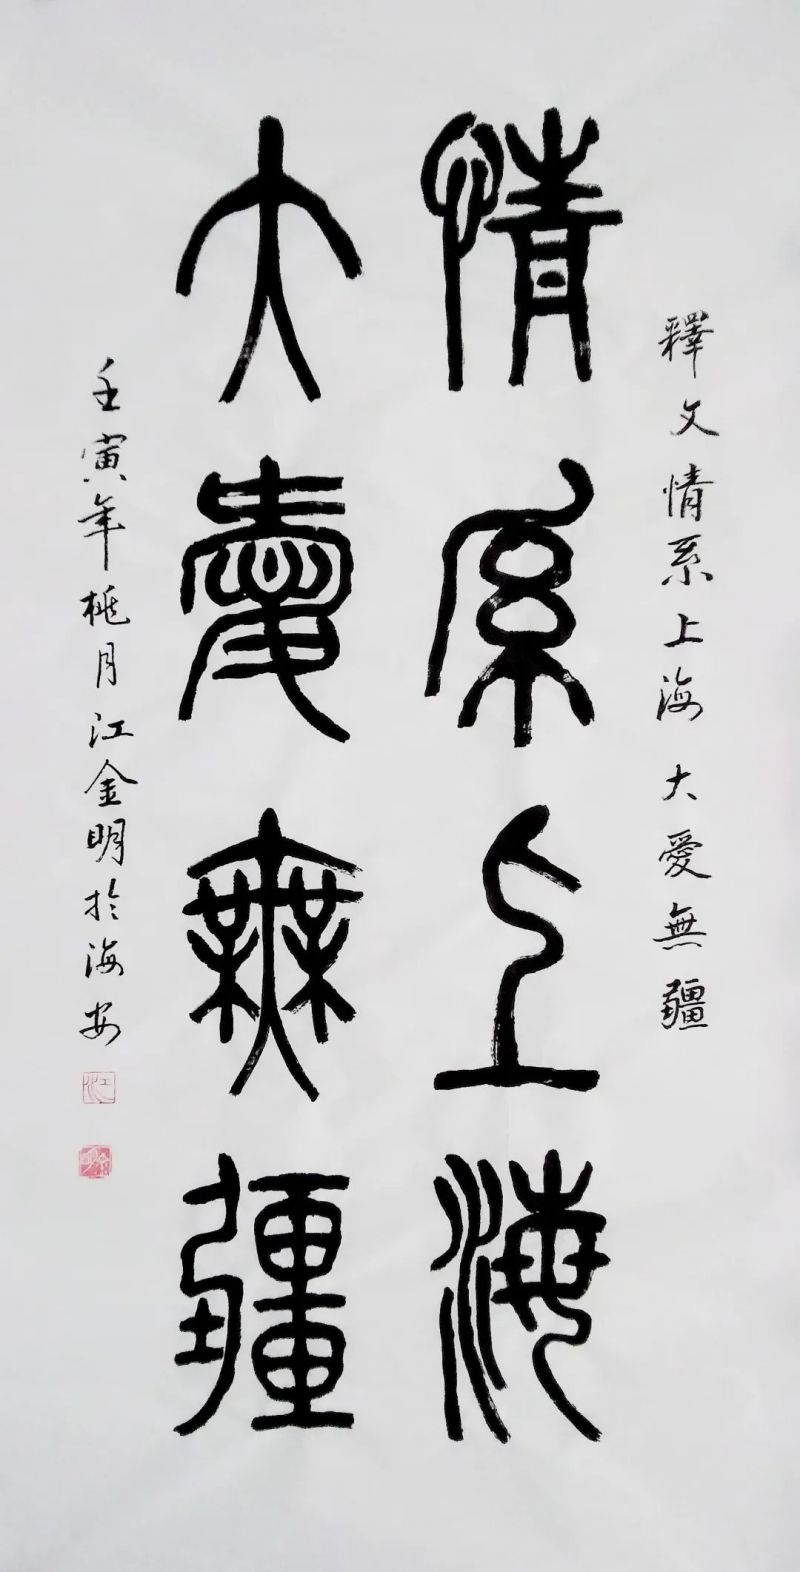 釋文情系上海大愛無疆
情系上海
大愛無疆
壬寅年桃月江金明於海安
江